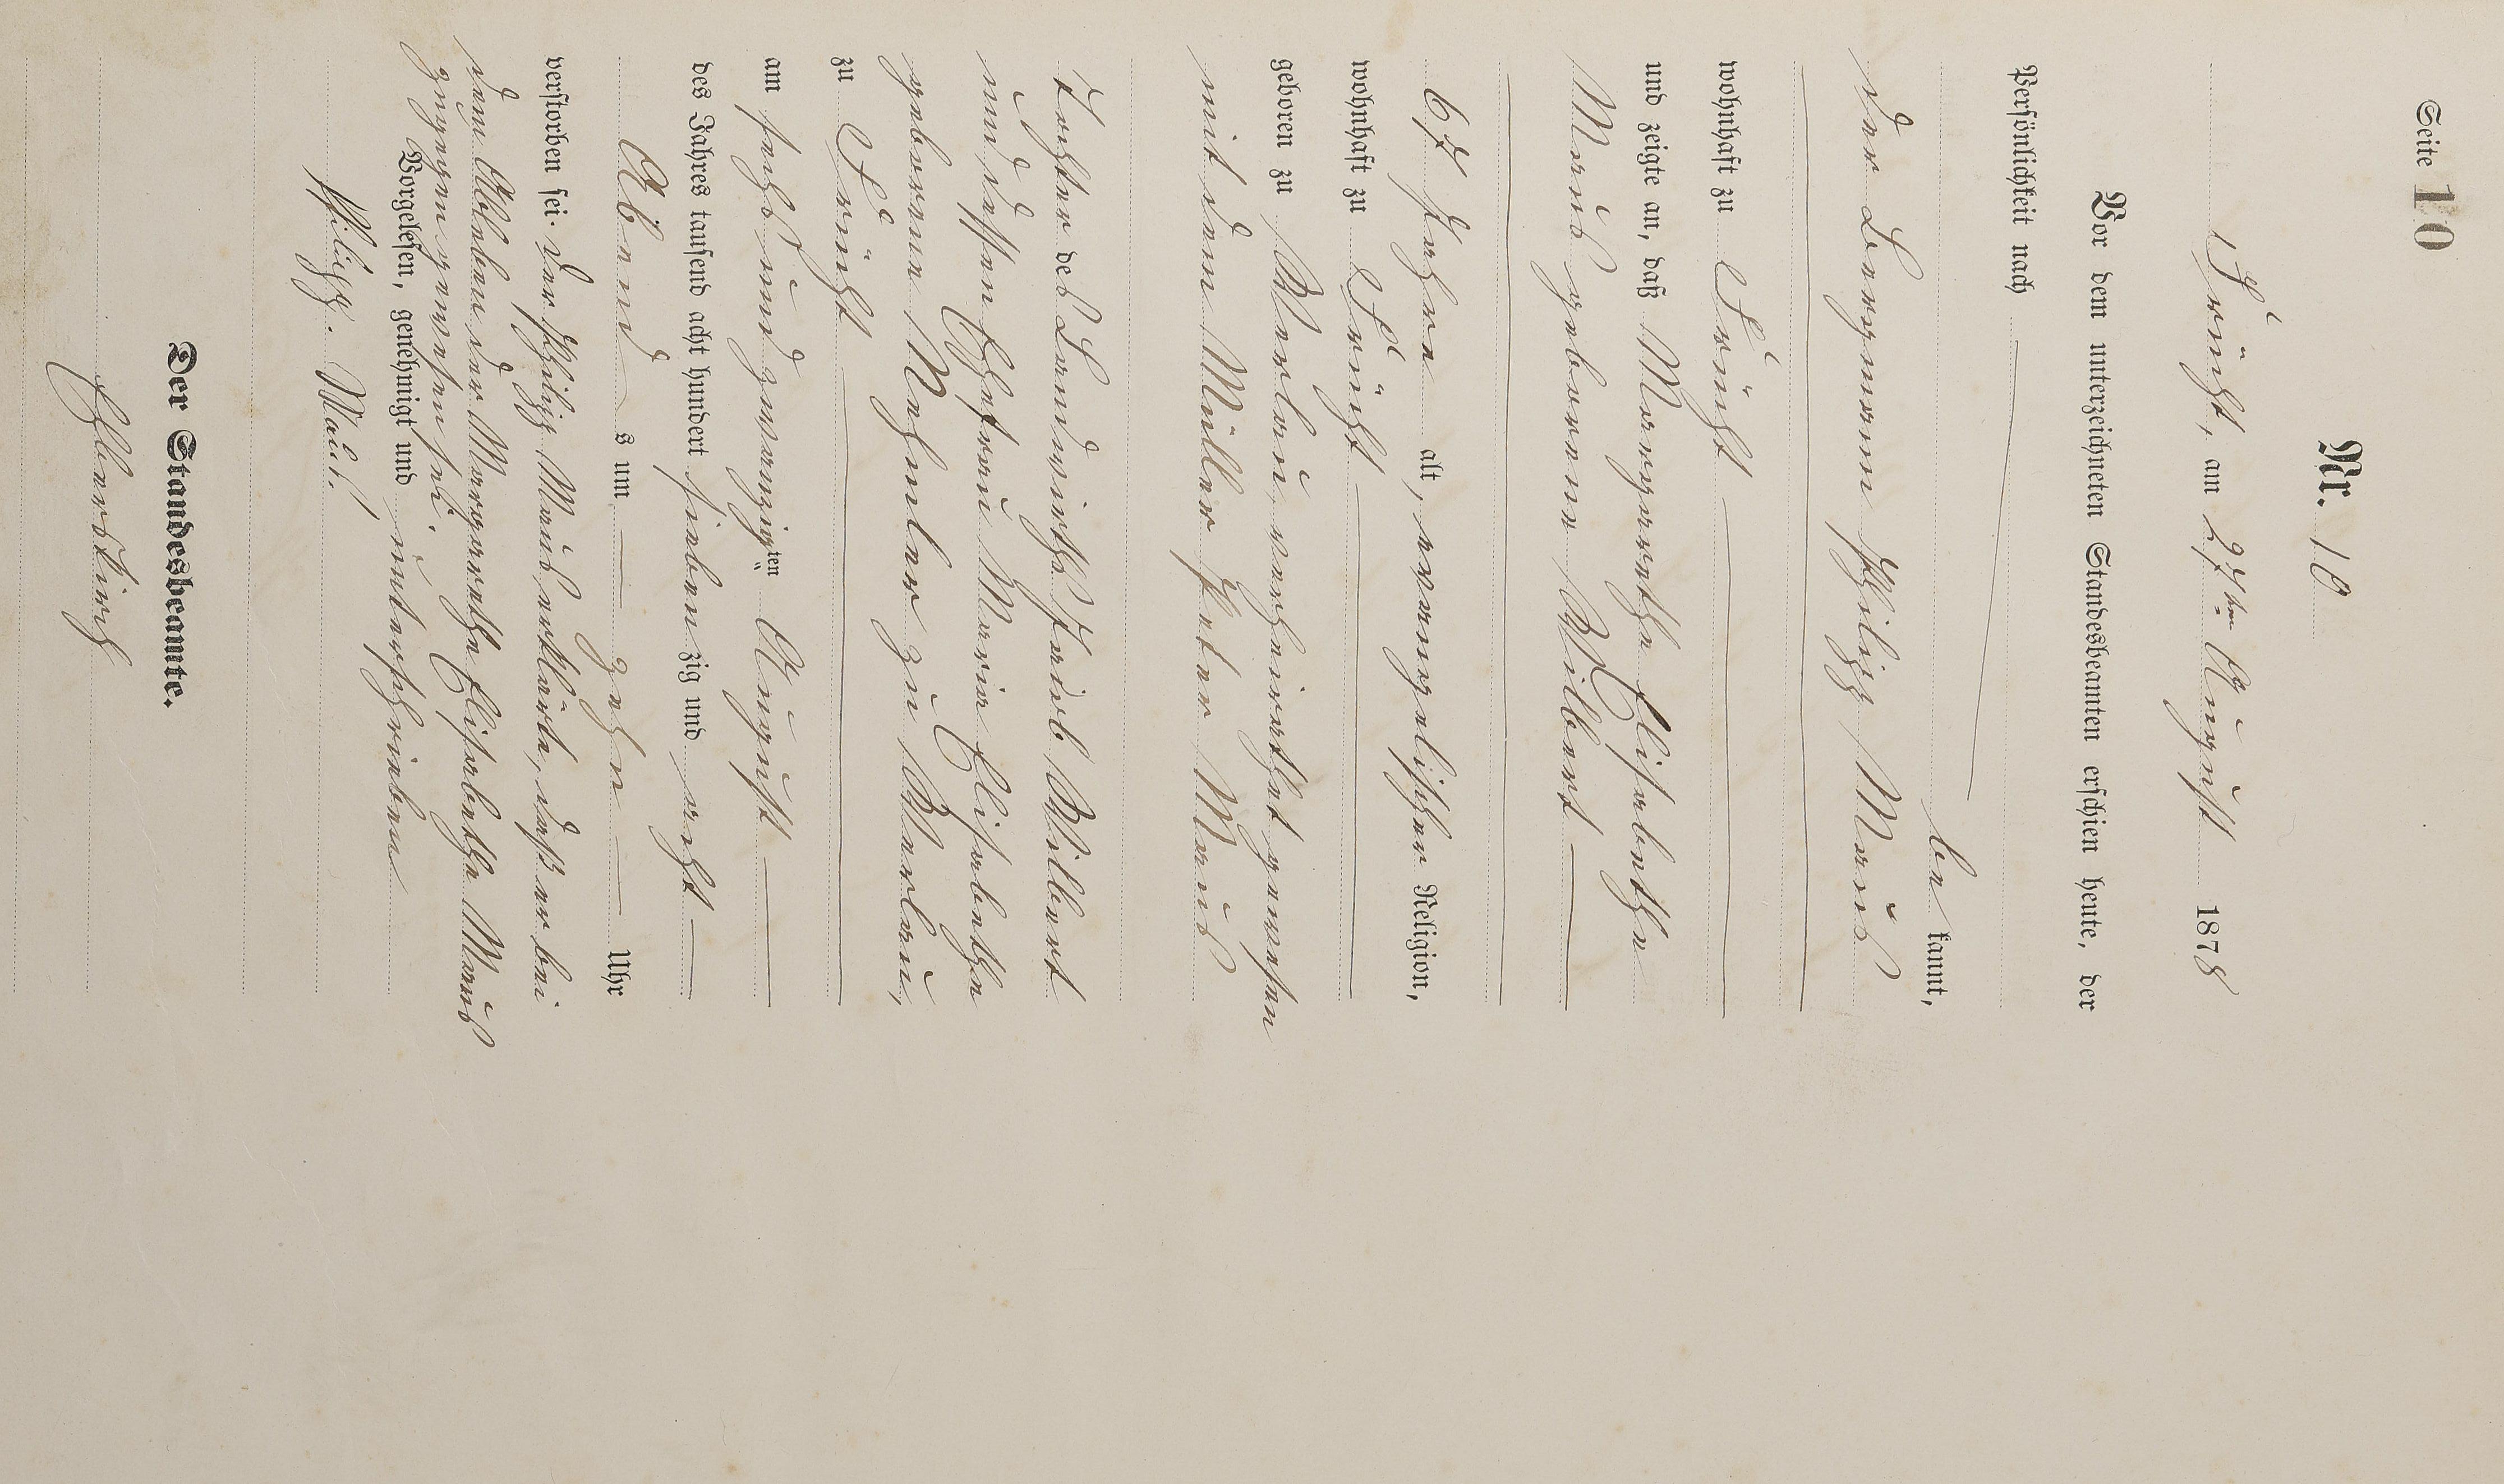 Seite 10
Nr. 10
Frücht, am 27ten August 1878
Vor dem unterzeichneten Standesbeamten erschien heute, der
Persönlichkeit nach
be kannt,
der Bergmann Philipp Maus
wohnhaft zu Frücht
und zeigte an, daß Margarethe Elisabethe
Maus geborene Wilbert
67 Jahre alt, evangelischer Religion,
wohnhaft zu Frücht
geboren zu Becheln, verheirathet gewesen
mit dem Müller Peter Maus
Tochter des Landwirths Jacob Wilbert
und dessen Ehefrau Maria Elisabethe
geborene zu Becheln,
zu Frücht
am sechs und zwanzigten August
des Jahres tausend acht hundert siebenzig und acht
Abend s um zehn Uhr
verstorben sei. Der Philipp Maus erklärte, daß er bei
dem Ableben der Margarethe Elisabethe Maus
zugegen gewesen sei.
Vorgelesen, genehmigt und unterschrieben
Philipp. Maus.
Der Standesbeamte.